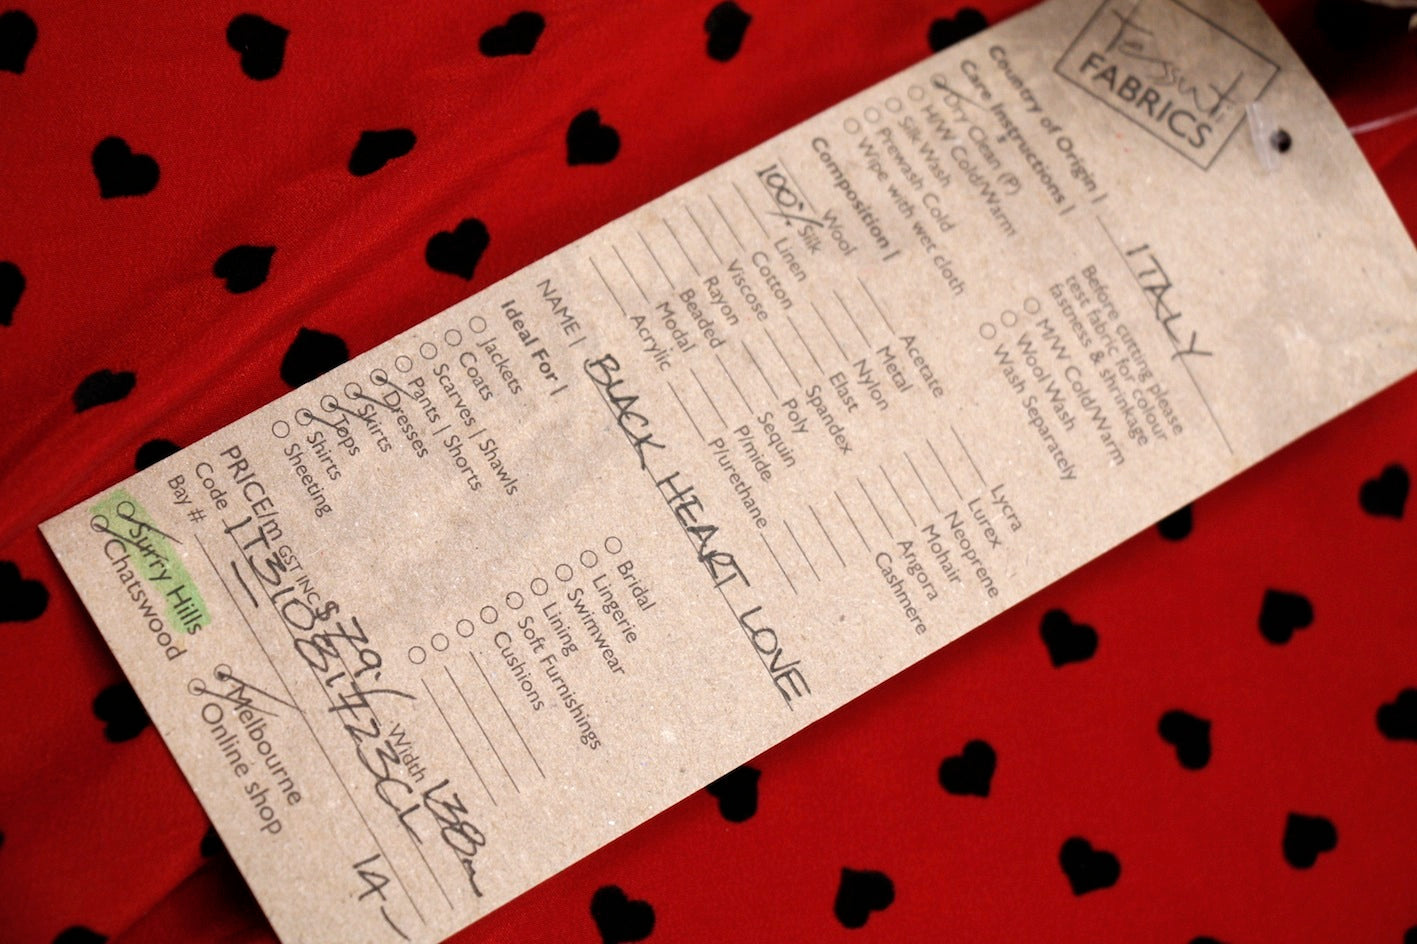 Tessuti
FABRICS
Country of Origin | ITALY
Care Instructions |
Dry Clean (P)
H/W Cold/Warm
Silk Wash
Prewash Cold
Wipe with wet cloth
Before cutting please
test fabric for colour
fastness & shrinkage
M/W Cold/Warm
Wool Wash
Wash Separately
Composition |
Wool
100% Silk
Linen
Cotton
Viscose
Rayon
Beaded
Modal
Acrylic
Acetate
Metal
Nylon
Elast
Spandex
Poly
Sequin
P/mide
P/urethane
Lycra
Lurex
Neoprene
Mohair
Angora
Cashmere
NAME | BLACK HEART LOVE
Ideal For |
Jackets
Coats
Scarves | Shawls
Pants | Shorts
Dresses
Skirts
Tops
Shirts
Sheeting
Bridal
Lingerie
Swimwear
Lining
Soft Furnishings
Cushions
PRICE/m GST INC $79/ Width 138cm
Code 1T31081723CL
Bay # 14
Surry Hills
Chatswood
Melbourne
Online shop